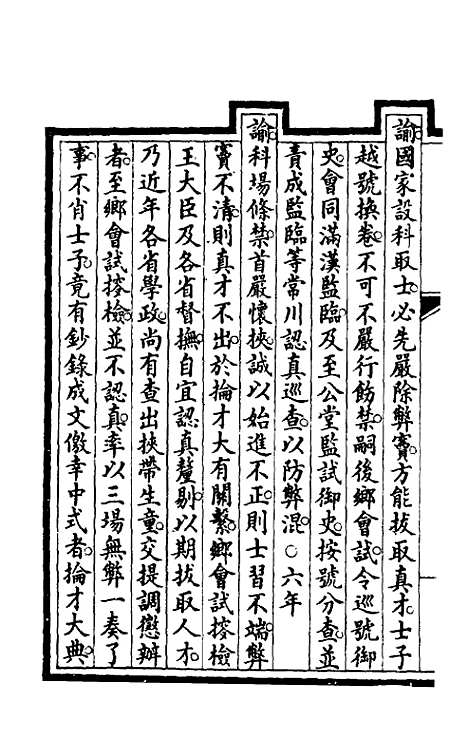 諭國家設科取士必先嚴除弊竇方能拔取真才士子
越號換卷不可不嚴行飭禁嗣後鄉會試令巡號御
史會同滿漢監臨及至公堂監試御史按號分查並
責成監臨等常川認真巡查以防弊混○六年
諭科場條禁首嚴懷挾誠以始進不正則士習不端弊
竇不清則真才不出於掄才大有關繫鄉會試搜檢
王大臣及各省督撫自宜認真釐剔以期拔取人才
乃近年各省學政尚有查出挾帶生童交提調懲辦
者至鄉會試搜檢並不認真率以三場無弊一奏了
事不肖士子竟有鈔錄成文僥幸中式者掄才大典